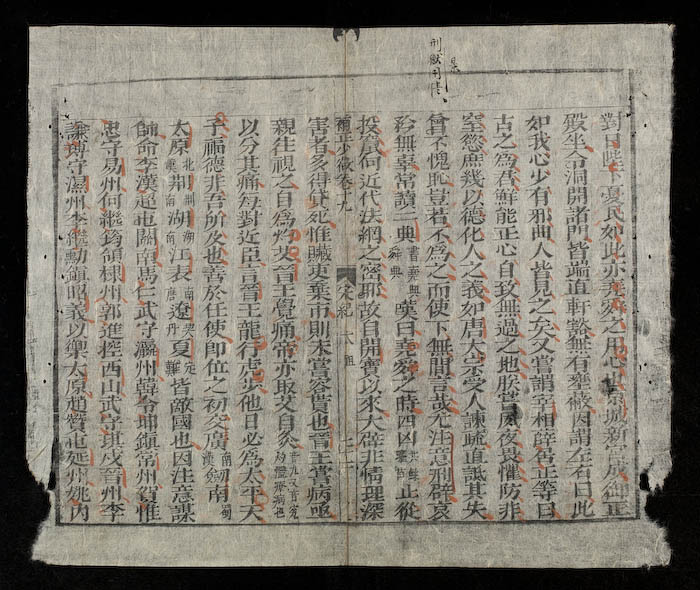 對曰陛下憂民如此亦堯舜之用心也京城新宮成御正
殿坐令洞開諸門皆端直軒豁無有壅蔽因謂左右曰此
如我心少有邪曲人皆見之矣又嘗謂宰相薛居正等曰
古之為君鮮能正心自致無過之地朕嘗夙夜畏懼防非
窒慾庶幾以德化人之義如唐太宗受人諫疏直詆其失
曾不愧恥豈若不為之而使下無間言哉尤注意刑辟哀
矜無辜常讀二典書堯典舜典嘆曰堯舜之時四凶止從
投竄何近代法網之密耶故自開寶以來大辟非情理深
少微卷十九 宋紀 太祖
害者多得貸死惟贓吏棄市則未嘗容貰也晉王嘗病亟
親往視之自為灼艾晉王覺痛帝亦取艾自灸音九又音究灼體療病也
以分其痛每對近臣言晉王龍行虎步他日必為太平天
子福德非吾所及也善於任使即位之初交廣南漢劍南蜀
太原北漢荊湖荊南湖南江表南唐遼契丹夏定難皆敵國也因注意謀
帥命李漢超屯關南馬仁武守瀛州韓令坤鎮常州賀惟
忠守易州何繼筠領棣州郭進控西山武守琪戍晉州李
謙溥守隰州李繼勳鎮昭義以禦太原趙贊屯延州姚內